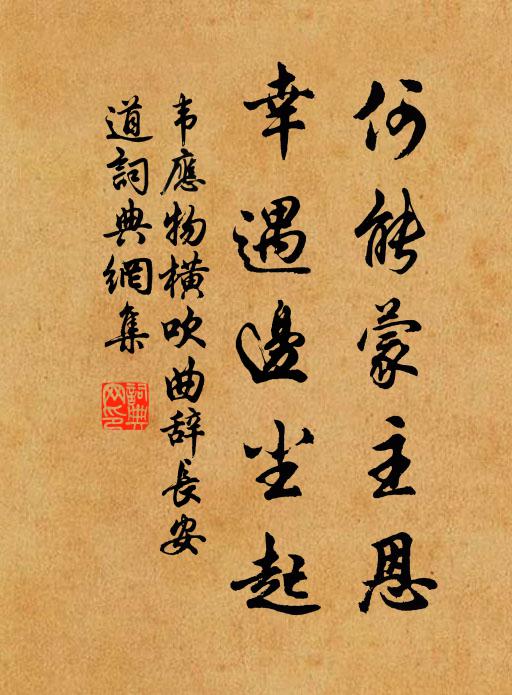 何能蒙主恩
幸遇邊尘起
韦應物橫吹曲辞長安
道詞典網集
詞典
网印